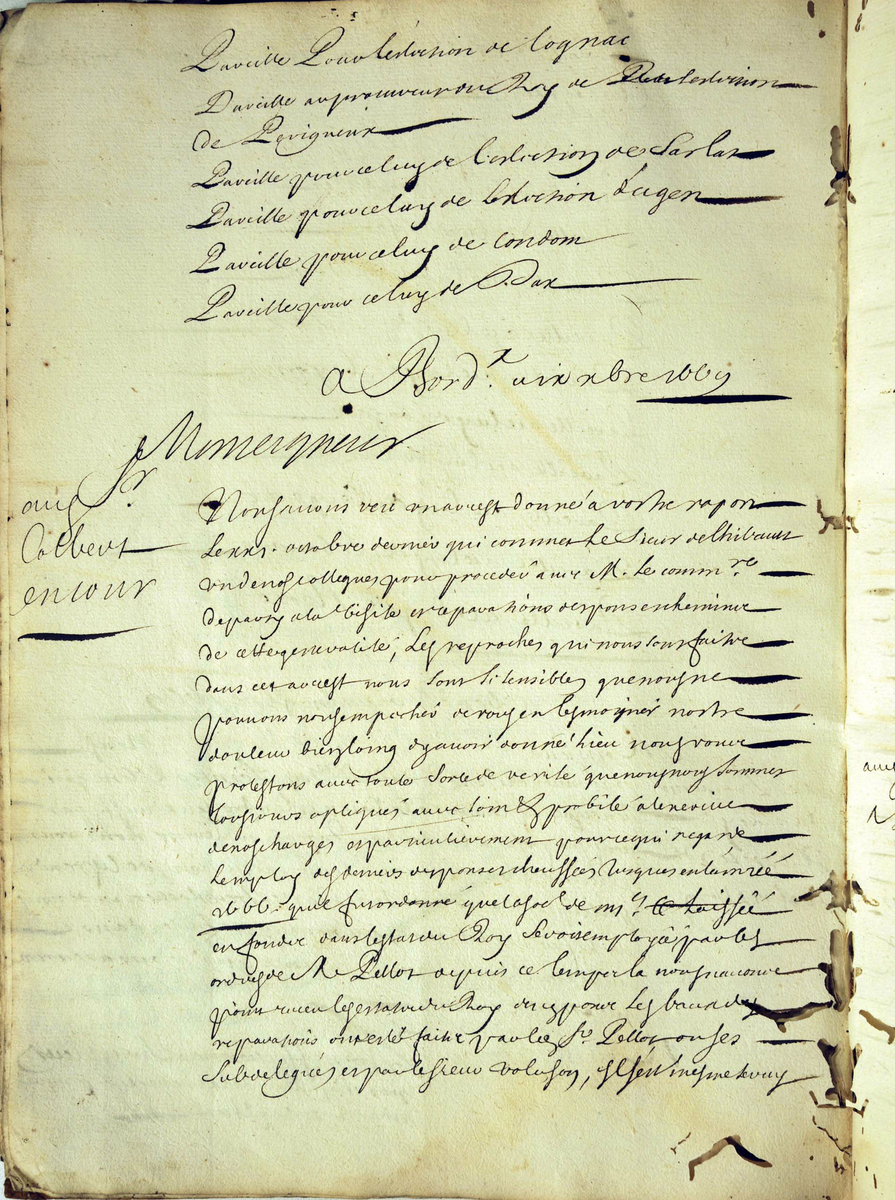 Pareille Pour leslection de Cognac
Pareille au procureur du Roy de leslection
de Perigueux
Pareille pour celuy de leslection de Sarlat
Pareille pour celuy de leslection d'agen
Pareille pour celuy de Condom
Pareille pour celuy de Dax
a Bord.x xbre 1669
Monseigneur
Sr
Colbert
en cour
Nous avons veu un arrest donné a vostre raport
le xxi. octobre dernier qui commet le Sieur de thibault
un de nos collegues pour proceder avec M. le comm.re
departy a la visite et reparations des pons et chemins
de cette generalité, Les reproches qui nous sont faitte
dans cet arrest nous sont si sensibles que nous ne
pouvons nous empecher de vous en tesmoigner nostre
douleur bien loing dy avoir donné lieu nous vous
protestons avec toute sorte de verité que nous nous sommes
tousjours apliqués avec soin & probité a lexercice
de nos charges et particulierement pour ce qui regarde
lemploy des deniers des pons et chaussées jusques en lannée
1666. quil fut ordonné que la so.e de m.s laissée
en fondz dans lestat du Roy seroit employée par les
ordres de Mr Pellot depuis ce temps la nous navons
point receu les estats du Roy des pons Les baux des
reparations ont esté faits par le Sr Pellot ou ses
subdelegués et par le sieur Voluson, Il sest mesme